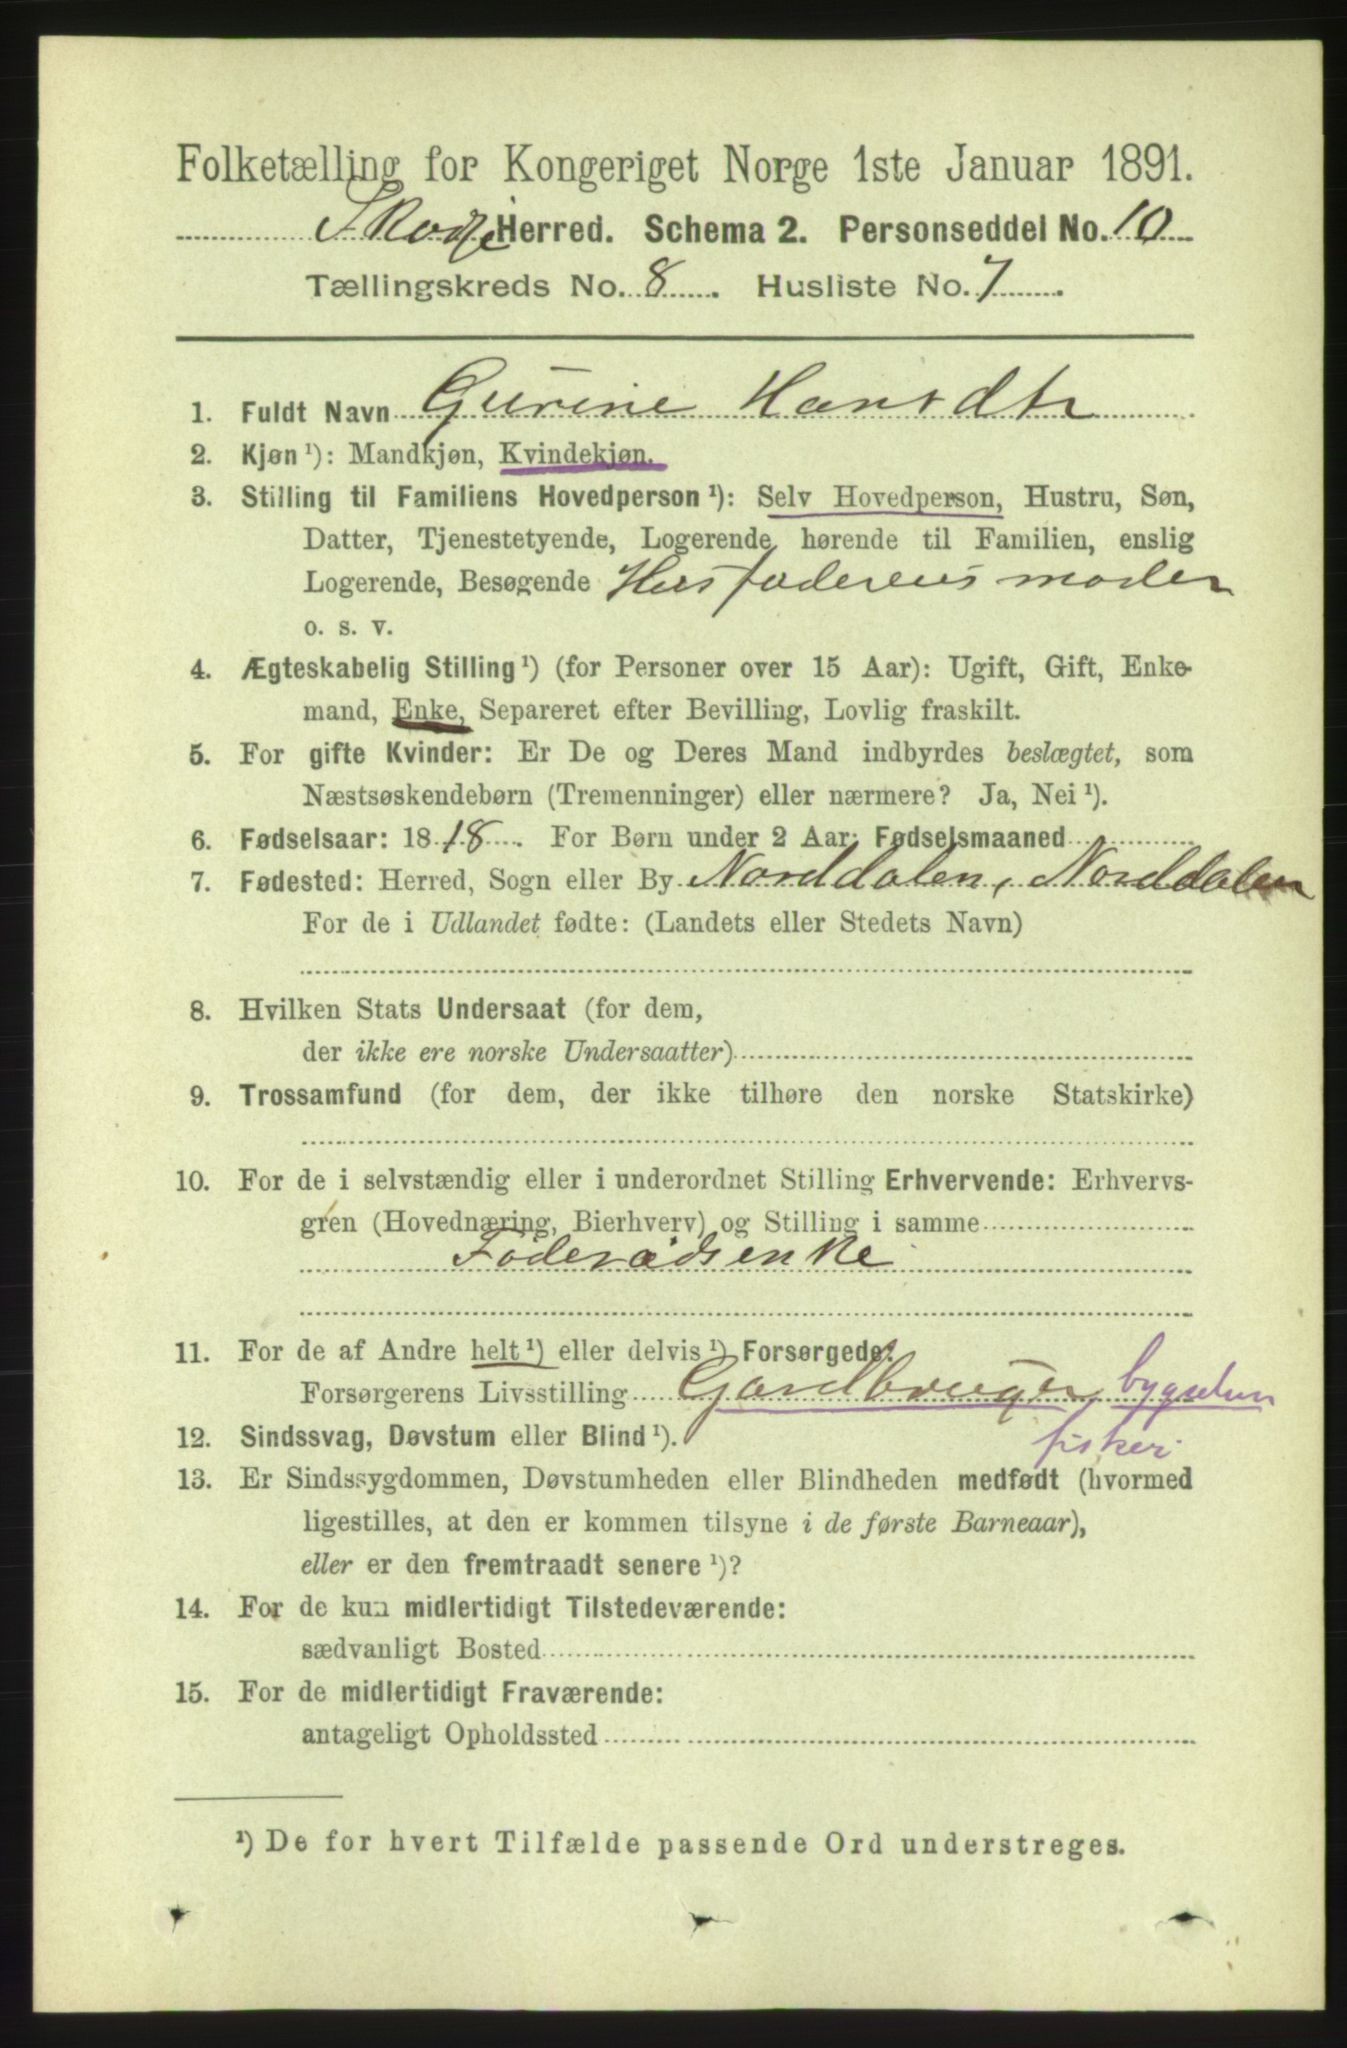 Folketælling for Kongeriget Norge 1ste Januar 1891.
Skodje Herred. Schema 2. Personseddel No. 10
Tællingskreds No. 8. Husliste No. 7
1. Fuldt Navn Gurine Hansdtr
2. Kjøn ¹): Mandkjøn, Kvindekjøn.
3. Stilling til Familiens Hovedperson ¹): Selv Hovedperson, Hustru, Søn,
Datter, Tjenestetyende, Logerende hørende til Familien, enslig
Logerende, Besøgende Husfaderens moder
o. s. v.
4. Ægteskabelig Stilling ¹) (for Personer over 15 Aar): Ugift, Gift, Enke-
mand, Enke, Separeret efter Bevilling, Lovlig fraskilt.
5. For gifte Kvinder: Er De og Deres Mand indbyrdes beslægtet, som
Næstsøskendebørn (Tremenninger) eller nærmere? Ja, Nei ¹).
6. Fødselsaar: 1818. For Børn under 2 Aar: Fødselsmaaned
7. Fødested: Herred, Sogn eller By Norddalen, Norddalen
For de i Udlandet fødte: (Landets eller Stedets Navn)
8. Hvilken Stats Undersaat (for dem,
der ikke ere norske Undersaatter)
9. Trossamfund (for dem, der ikke tilhøre den norske Statskirke)
10. For de i selvstændig eller i underordnet Stilling Erhvervende: Erhvervs-
gren (Hovednæring, Bierhverv) og Stilling i samme
Føderådsenke
11. For de af Andre helt ¹) eller delvis ¹) Forsørgede:
Forsørgerens Livsstilling Gardbruger, bygselm
fiskeri
12. Sindssvag, Døvstum eller Blind ¹).
13. Er Sindssygdommen, Døvstumheden eller Blindheden medfødt (hvormed
ligestilles, at den er kommen tilsyne i de første Barneaar),
eller er den fremtraadt senere ¹)?
14. For de kun midlertidigt Tilstedeværende:
sædvanligt Bosted
15. For de midlertidigt Fraværende:
antageligt Opholdssted
¹) De for hvert Tilfælde passende Ord understreges.